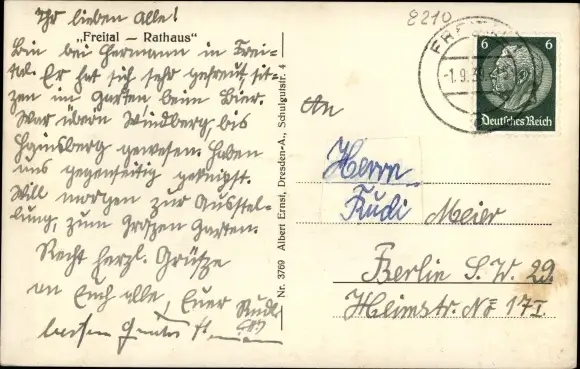 Ihr lieben Alle!
„Freital – Rathaus"
Bin bei Hermann in Frei-
tal. Er hat sich sehr gefreut, sit-
zen im Garten beim Bier.
War übern Windberg, bis
Hainsberg gewesen. Haben
uns gegenseitig geknipst.
Will morgen zur Ausstel-
lung, zum Großen Garten.
Recht herzl. Grüße
an Euch alle, Euer Rudi
Nr. 3769 Albert Ernst, Dresden-A., Schulgutstr. 4
8210
-1.9.3
6 6
Deutsches Reich
An
Herrn
Rudi Meier
Berlin S.W. 29.
Heimstr. No 17 I.